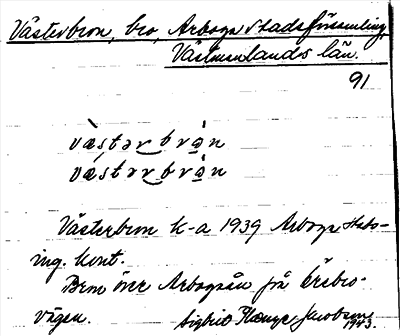 Västerbron, bro, Arboga stadsförsamling,
Västmanlands län.
91
väst̩ər͜brån
väst̩ər͜brån
Västerbron k-a 1939 Arboga Stads-
ing. kont.
Bron över Arbogaån på Örebro-
vägen. Sigbrit Plænge Jacobson
1943.